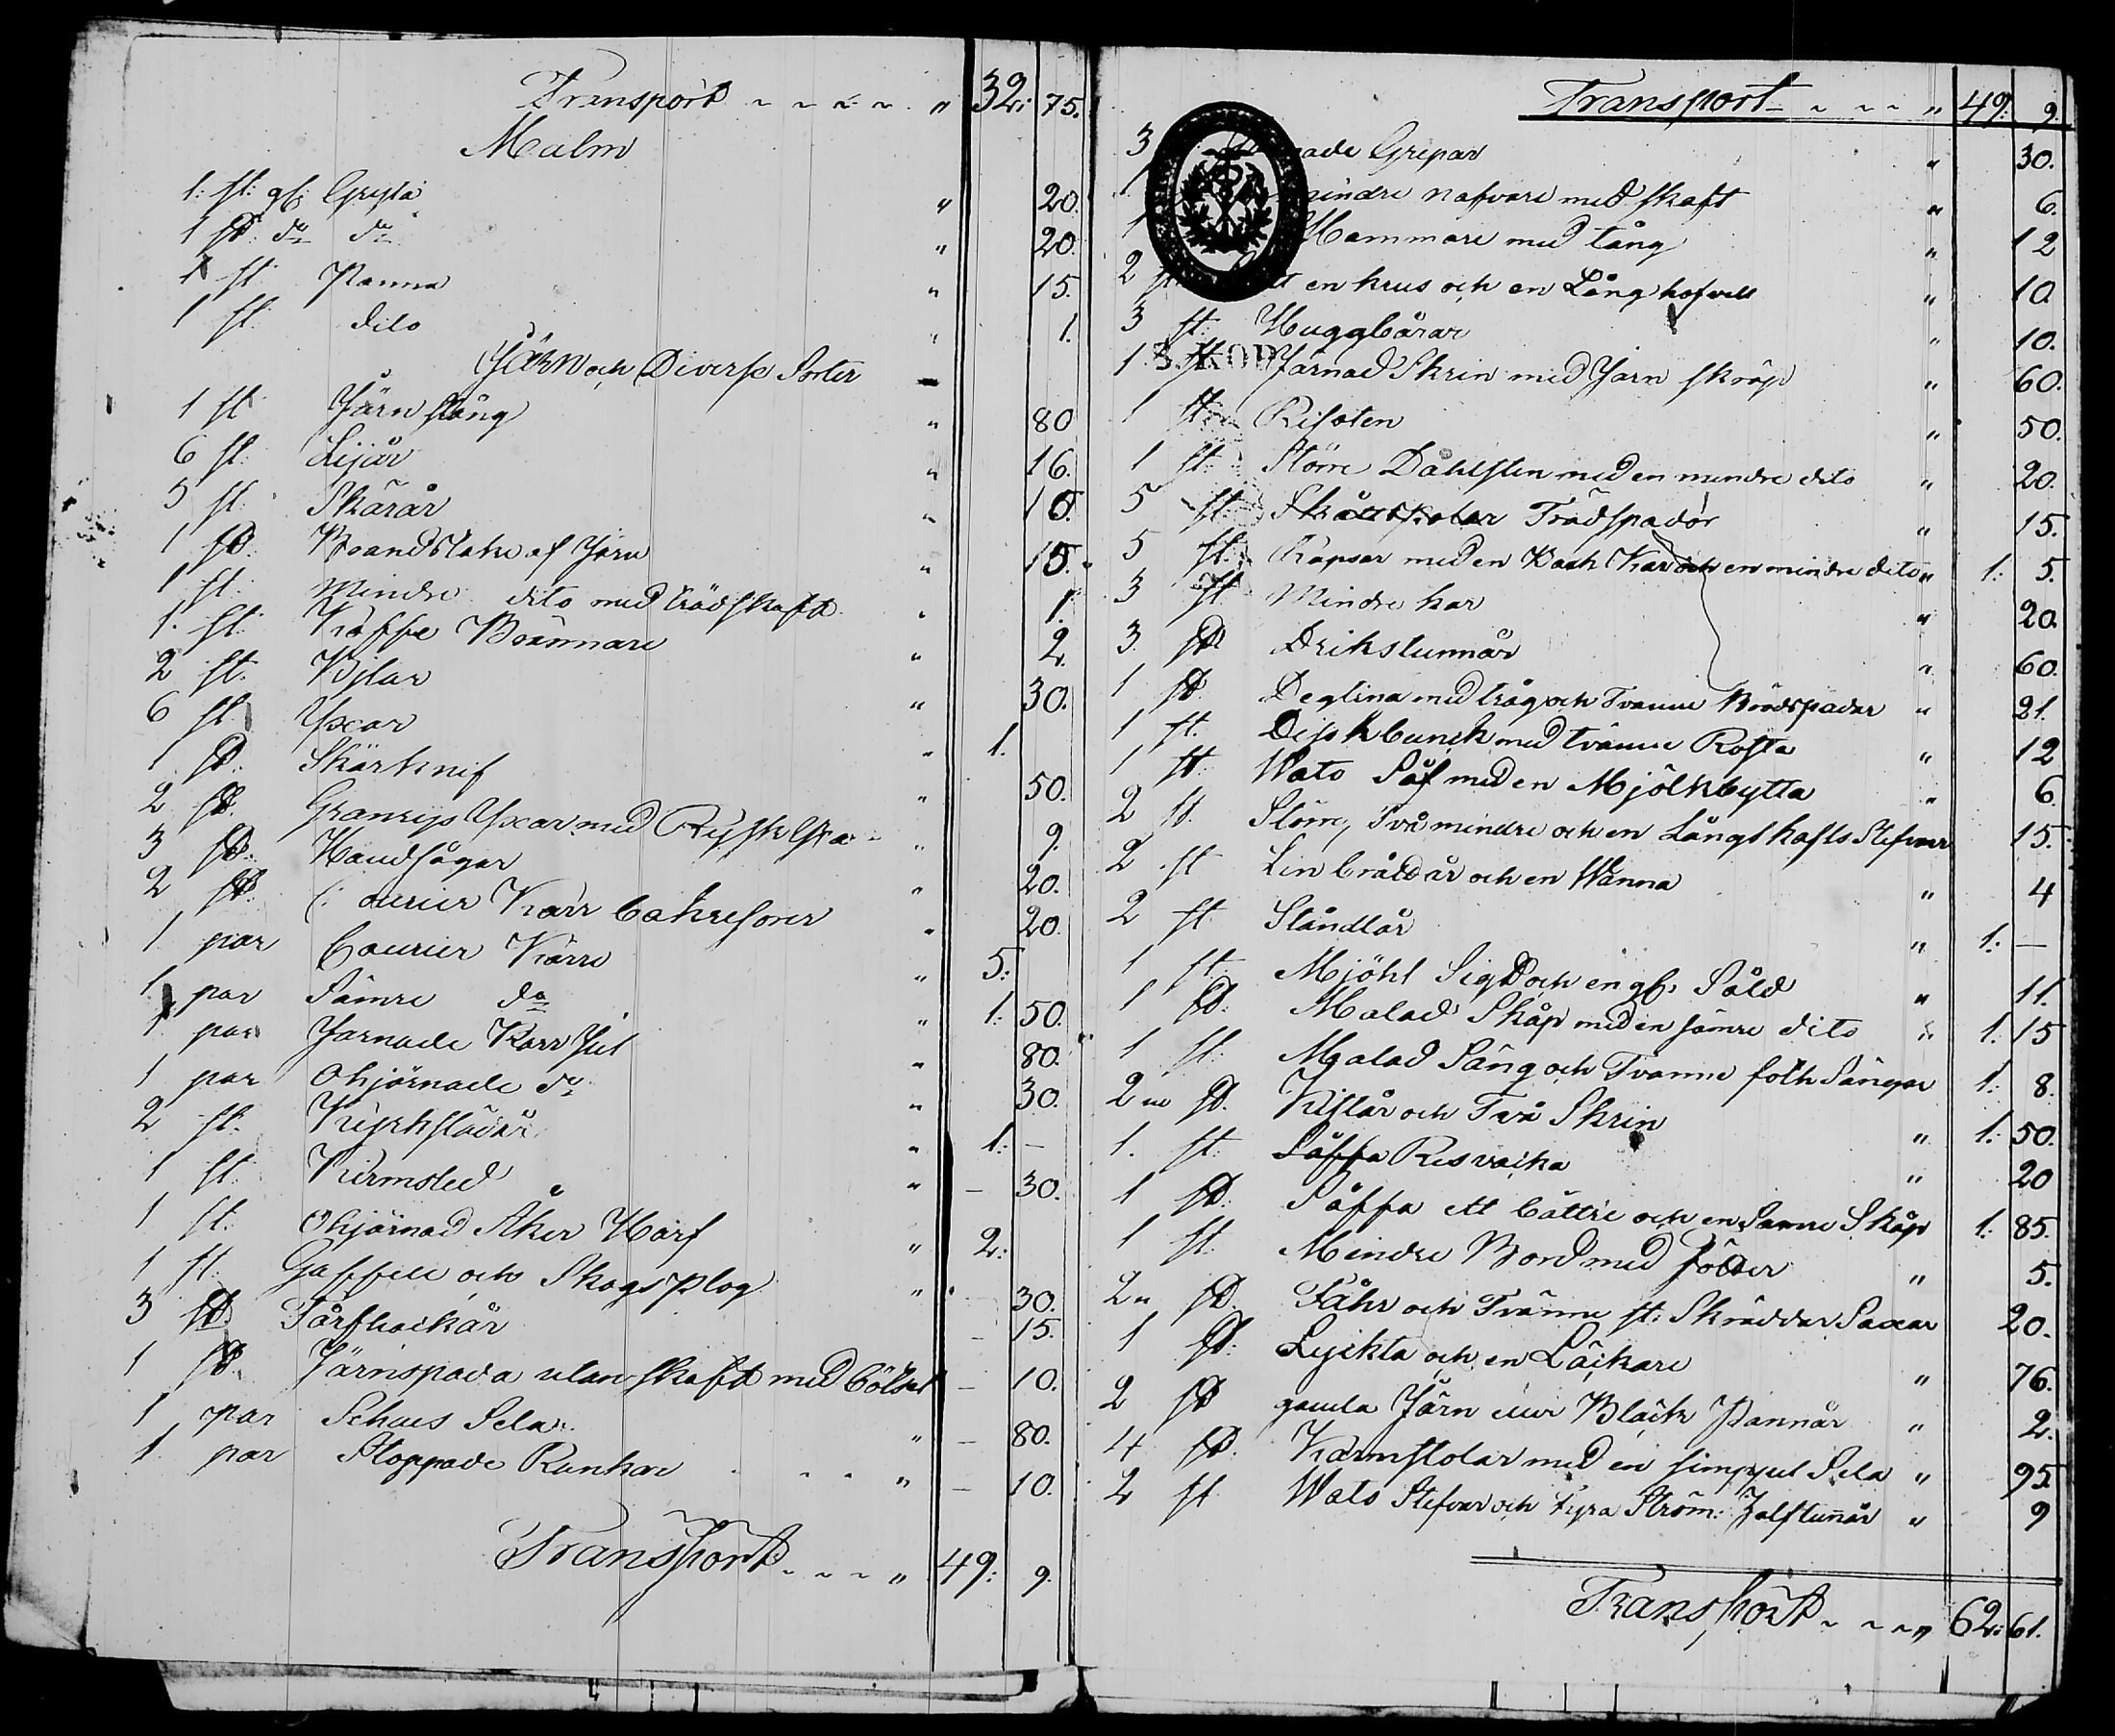 Transport „ 32: 75.
Malm
1: st: gl: Gryta „ 20.
1 st: do do „ 20
1 st Panna „ 15.
1 st: dito „ 1.
Järn och Diverse Sorter
1 st Järnstång „ 80
6 st: Lijår „ 16.
5 st: Skärår „ 10.
1 st: Brandstake af Järn „ 15.
1 st: Mindre dito med trädskaft „ 1.
1. st: Kaffe Brännare „ 2.
2 st: Bilar „ 30.
6 st. Yxar „ 1.
1 st: Skärknif „ 50.
2 st: Yxar med „ 9.
3 st: Handsågar „ 20.
2 st: Courier Kärr „ 20
1 par Courier Kärre „ 5:
1 par Sämre do „ 1: 50.
1 par Jarnade Karr Jul „ 80.
1 par Ohjärnade do „ 30.
2 st. Kyrkslädår „ 1: –
1 st: – 30.
1 st: Ohjärnad Åker Harf „ 2:
1 st: Gaffell och Skogsplog „ 30.
3 st: Tårfhackår – 15.
1 st: Järnspada utan skaft med – 10.
1 par Sela „ – 80.
1 par Stoppade Rankor „ – 10.
Transport „ 49: 9.
Transport „ 49: 9.
3 Grepar „ 30.
1 mindre nafvare med skaft „ 6.
1 Hammare med tång „ 12
2 st en krus och en Lång hofvell „ 10
3 st: Huggbårar „ 10.
1 st Järnad Skrin med Jarn skråp „ 60.
1 st: „ 50.
1 st: Större med en mindre dito „ 20.
5 st: Trädspadår „ 15.
5 st: Kapsar med en Back Kar och en mindre dito „ 1: 5.
3 st Mindre kar „ 20.
3 st Drikstunnår „ 60.
1 st Degtina med tråg och Tvanne Brödspadar „ 21.
1 st. med tvänne Rosta „ 12
1 st: Wato Så med en Mjölkbytta „ 6
2 st. Större, Två mindre och en Långskafts Stefvor 15.
2 st Lin bråddår och en Wanna „ 4
2 st Ståndtår „ 1: –
1 st: Mjöhl Sigt och en gl. Såld „ 11.
1 st: Malad Skåp med en sämre dito „ 1: 15
1 st: Malad Säng och Tvanne folk Sängar 1: 8.
2 „ st. Kistår och Två Skrin „ 1: 50.
1. st: Såffa „ 20
1 st: Såffa ett båttre och en Samre Skåp 1: 85.
1 st: Mindre Bord med „ 5.
2 „ st: Fåhr och Tvänne st: Skräddar Saxar 20.
1 st: Lyckta och en Läckare „ 76.
2 st gamla Järn Bläck Pannår „ 2.
4 st. Karmstolar med en simpel Sela „ 95.
2 st Wato Stefvor och Fyra Ström: Halftunnår „ 9
Transport „ 62: 61.